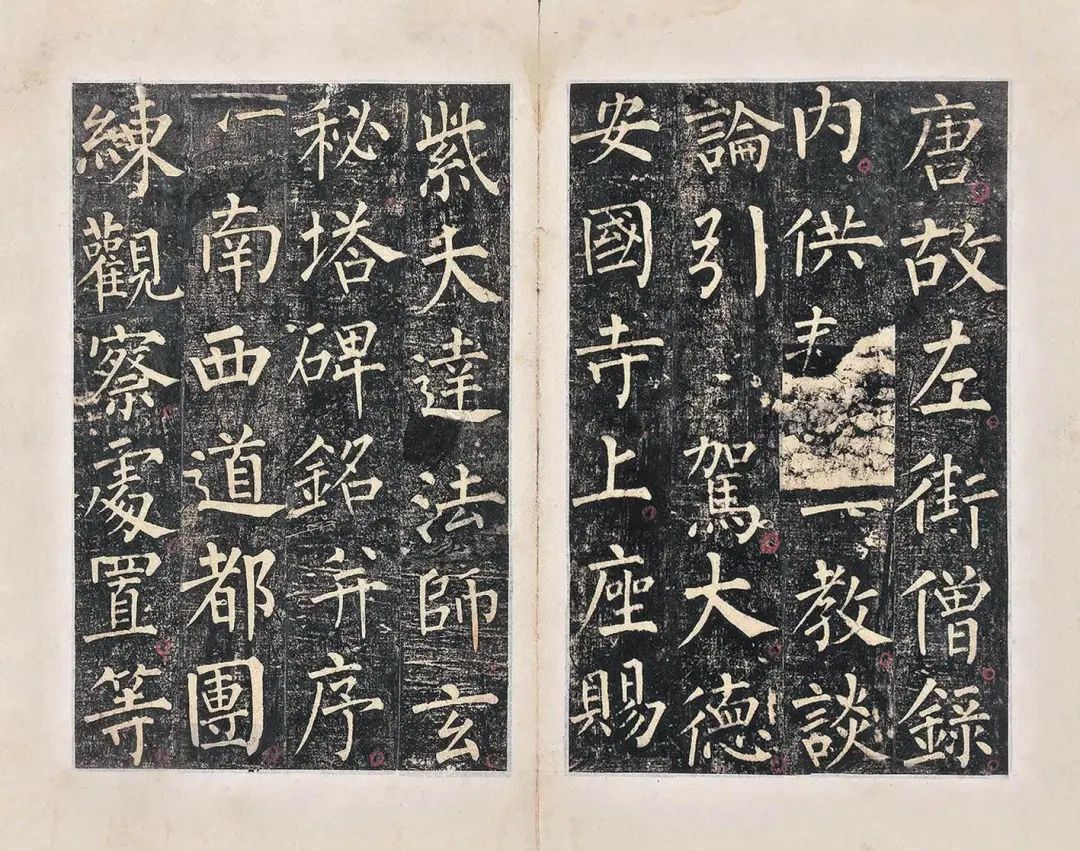 唐故左街僧錄
内供教談
論引駕大德
安國寺上座賜
紫大達法師玄
秘塔碑銘并序
南西道都團
練觀察處置等